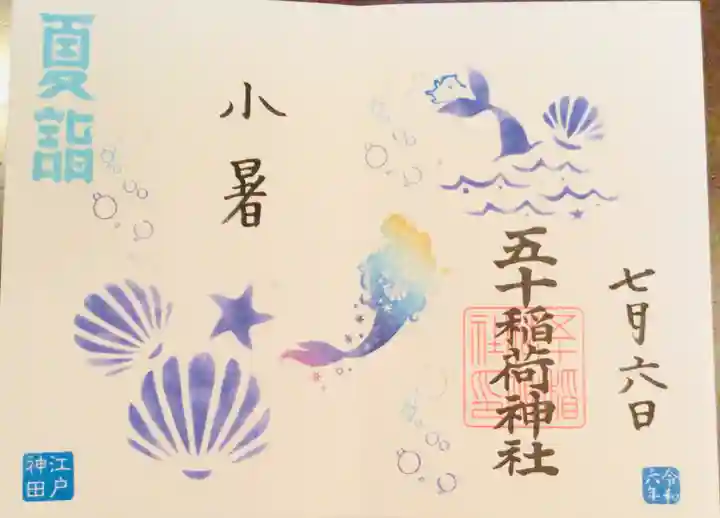 七月六日
五十稲荷神社
令和
六年
小暑
夏詣
江戸
神田